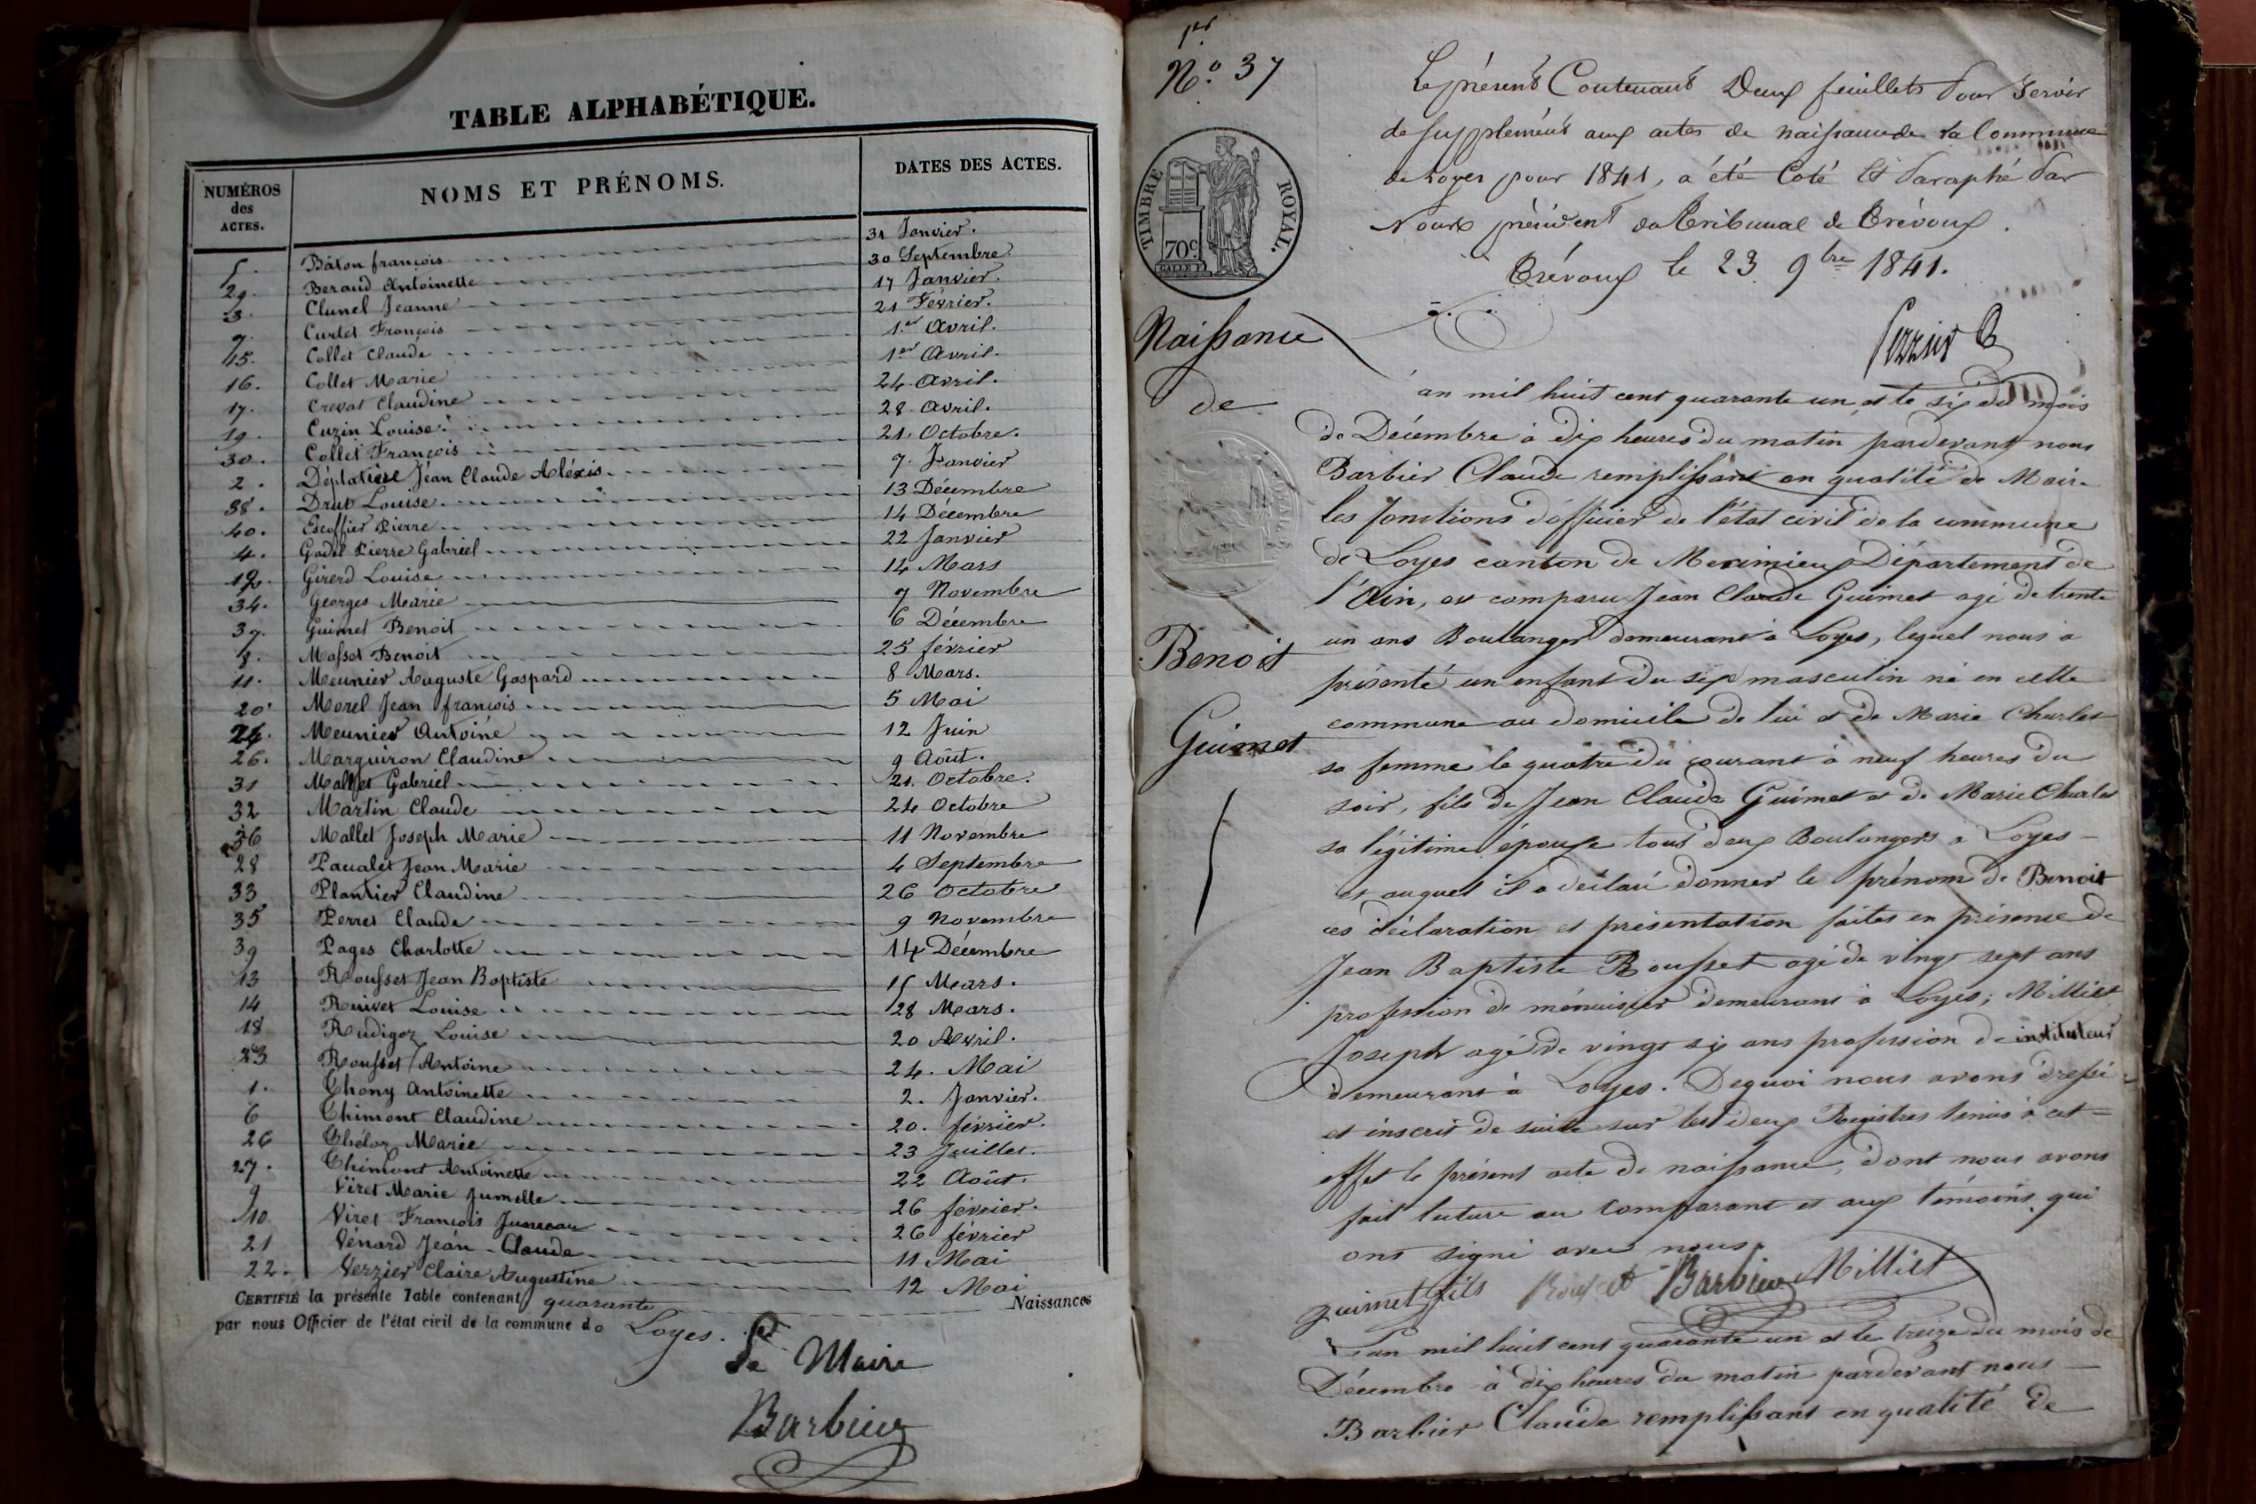 TABLE ALPHABÉTIQUE.
NUMÉROS des ACTES. NOMS ET PRÉNOMS. DATES DES ACTES.
5. Bâton françois 31 Janvier.
29. Beraud Antoinette 30 Septembre
3. Clunel Jeanne 17 Janvier.
7. Curtet François 21 Février.
15. Collet Claude 1.er Avril.
16. Collet Marie 1er Avril.
17. Crevat Claudine 24 Avril.
19. Cuzin Louise 28 Avril.
30. Collet François 21 Octobre.
2. Déplatière Jean Claude Aléxis 7 Janvier
38. Drut Louise 13 Décembre
40. Escoffier Pierre 14 Décembre
4. Godet Pierre Gabriel 22 Janvier
12. Girerd Louise 14 Mars
34. Georges Marie 7 Novembre
37. Guimet Benoit 6 Décembre
8. Mosset Benoit 25 février
11. Meunier Auguste Gaspard 8 Mars.
20. Morel Jean françois 5 Mai
24. Meunier Antoine 12 Juin
26. Marguiron Claudine 9 Août.
31 Gabriel 21. Octobre.
32 Martin Claude 24 Octobre
36 Mallet Joseph Marie 11 Novembre
28 Paualet Jean Marie 4 Septembre
33 Plantier Claudine 26 Octobre
35 Perret Claude 9 Novembre
39 Pages Charlotte 14 Décembre
13 Rousset Jean Baptiste 15 Mars.
14 Ruivet Louise 28 Mars.
18 Rudigoz Louise 20 Avril.
23 Rousset Antoine 24. Mai
1. Thony Antoinette 2. Janvier.
6 Thimont Claudine 20. février.
26 Marie 23 Juillet.
27. Thimont Antoinette 22 Août.
9 Viret Marie Jumelle 26 février.
10 Viret François Jumeau 26 février
21 Vénard Jean-Claude 11 Mai
22. Verzier Claire Augustine 12 Mai
CERTIFIÉ la présente Table contenant quarante Naissances
par nous Officier de l'état civil de la commune de Loyes.
Le Maire
Barbier
1er
N.o 37
Le présent Contenant Deux feuillets Pour Servir
de Supplément aux actes de naissance de la Commune
de Loyes pour 1841, a été Coté Et Paraphé Par
Nous président du Tribunal de Trévoux.
Trévoux le 23 9bre 1841.
TIMBRE ROYAL.
70c
Naissance
de
Benoit
Guimet
an mil huit cent quarante un et le six du mois
de Décembre à dix heures du matin pardevant nous
Barbier Claude remplissant en qualité de Maire
les fonctions d'officier de l'état civil de la commune
de Loyes canton de Meximieux Département de
l'Ain, est comparu Jean Claude Guimet agé de trente
un ans Boulanger demeurant à Loyes, lequel nous a
présenté un enfant du sexe masculin né en cette
commune au domicile de lui et de Marie Charlet
sa femme le quatre du courant à neuf heures du
soir, fils de Jean Claude Guimet et de Marie Charlet
sa légitime épouse tous deux Boulangers à Loyes
et auquel il a déclaré donner le prénom de Benoit
ces déclaration et présentation faites en présence de
Jean Baptiste Rousset agé de vingt sept ans
profession de ménuisier demeurant à Loyes; Milliet
Joseph agé de vingt six ans profession de instituteur
demeurant à Loyes. Dequoi nous avons dressé
et inscrit de suite sur les deux Registres tenus à cet
effet le présent acte de naissance, dont nous avons
fait lecture au comparant et aux témoins qui
ont signé avec nous.
guimet fils Rousset Barbier Milliet
L'an mil huit cent quarante un et le treize du mois de
Décembre à dix heures du matin pardevant nous
Barbier Claude remplissant en qualité de